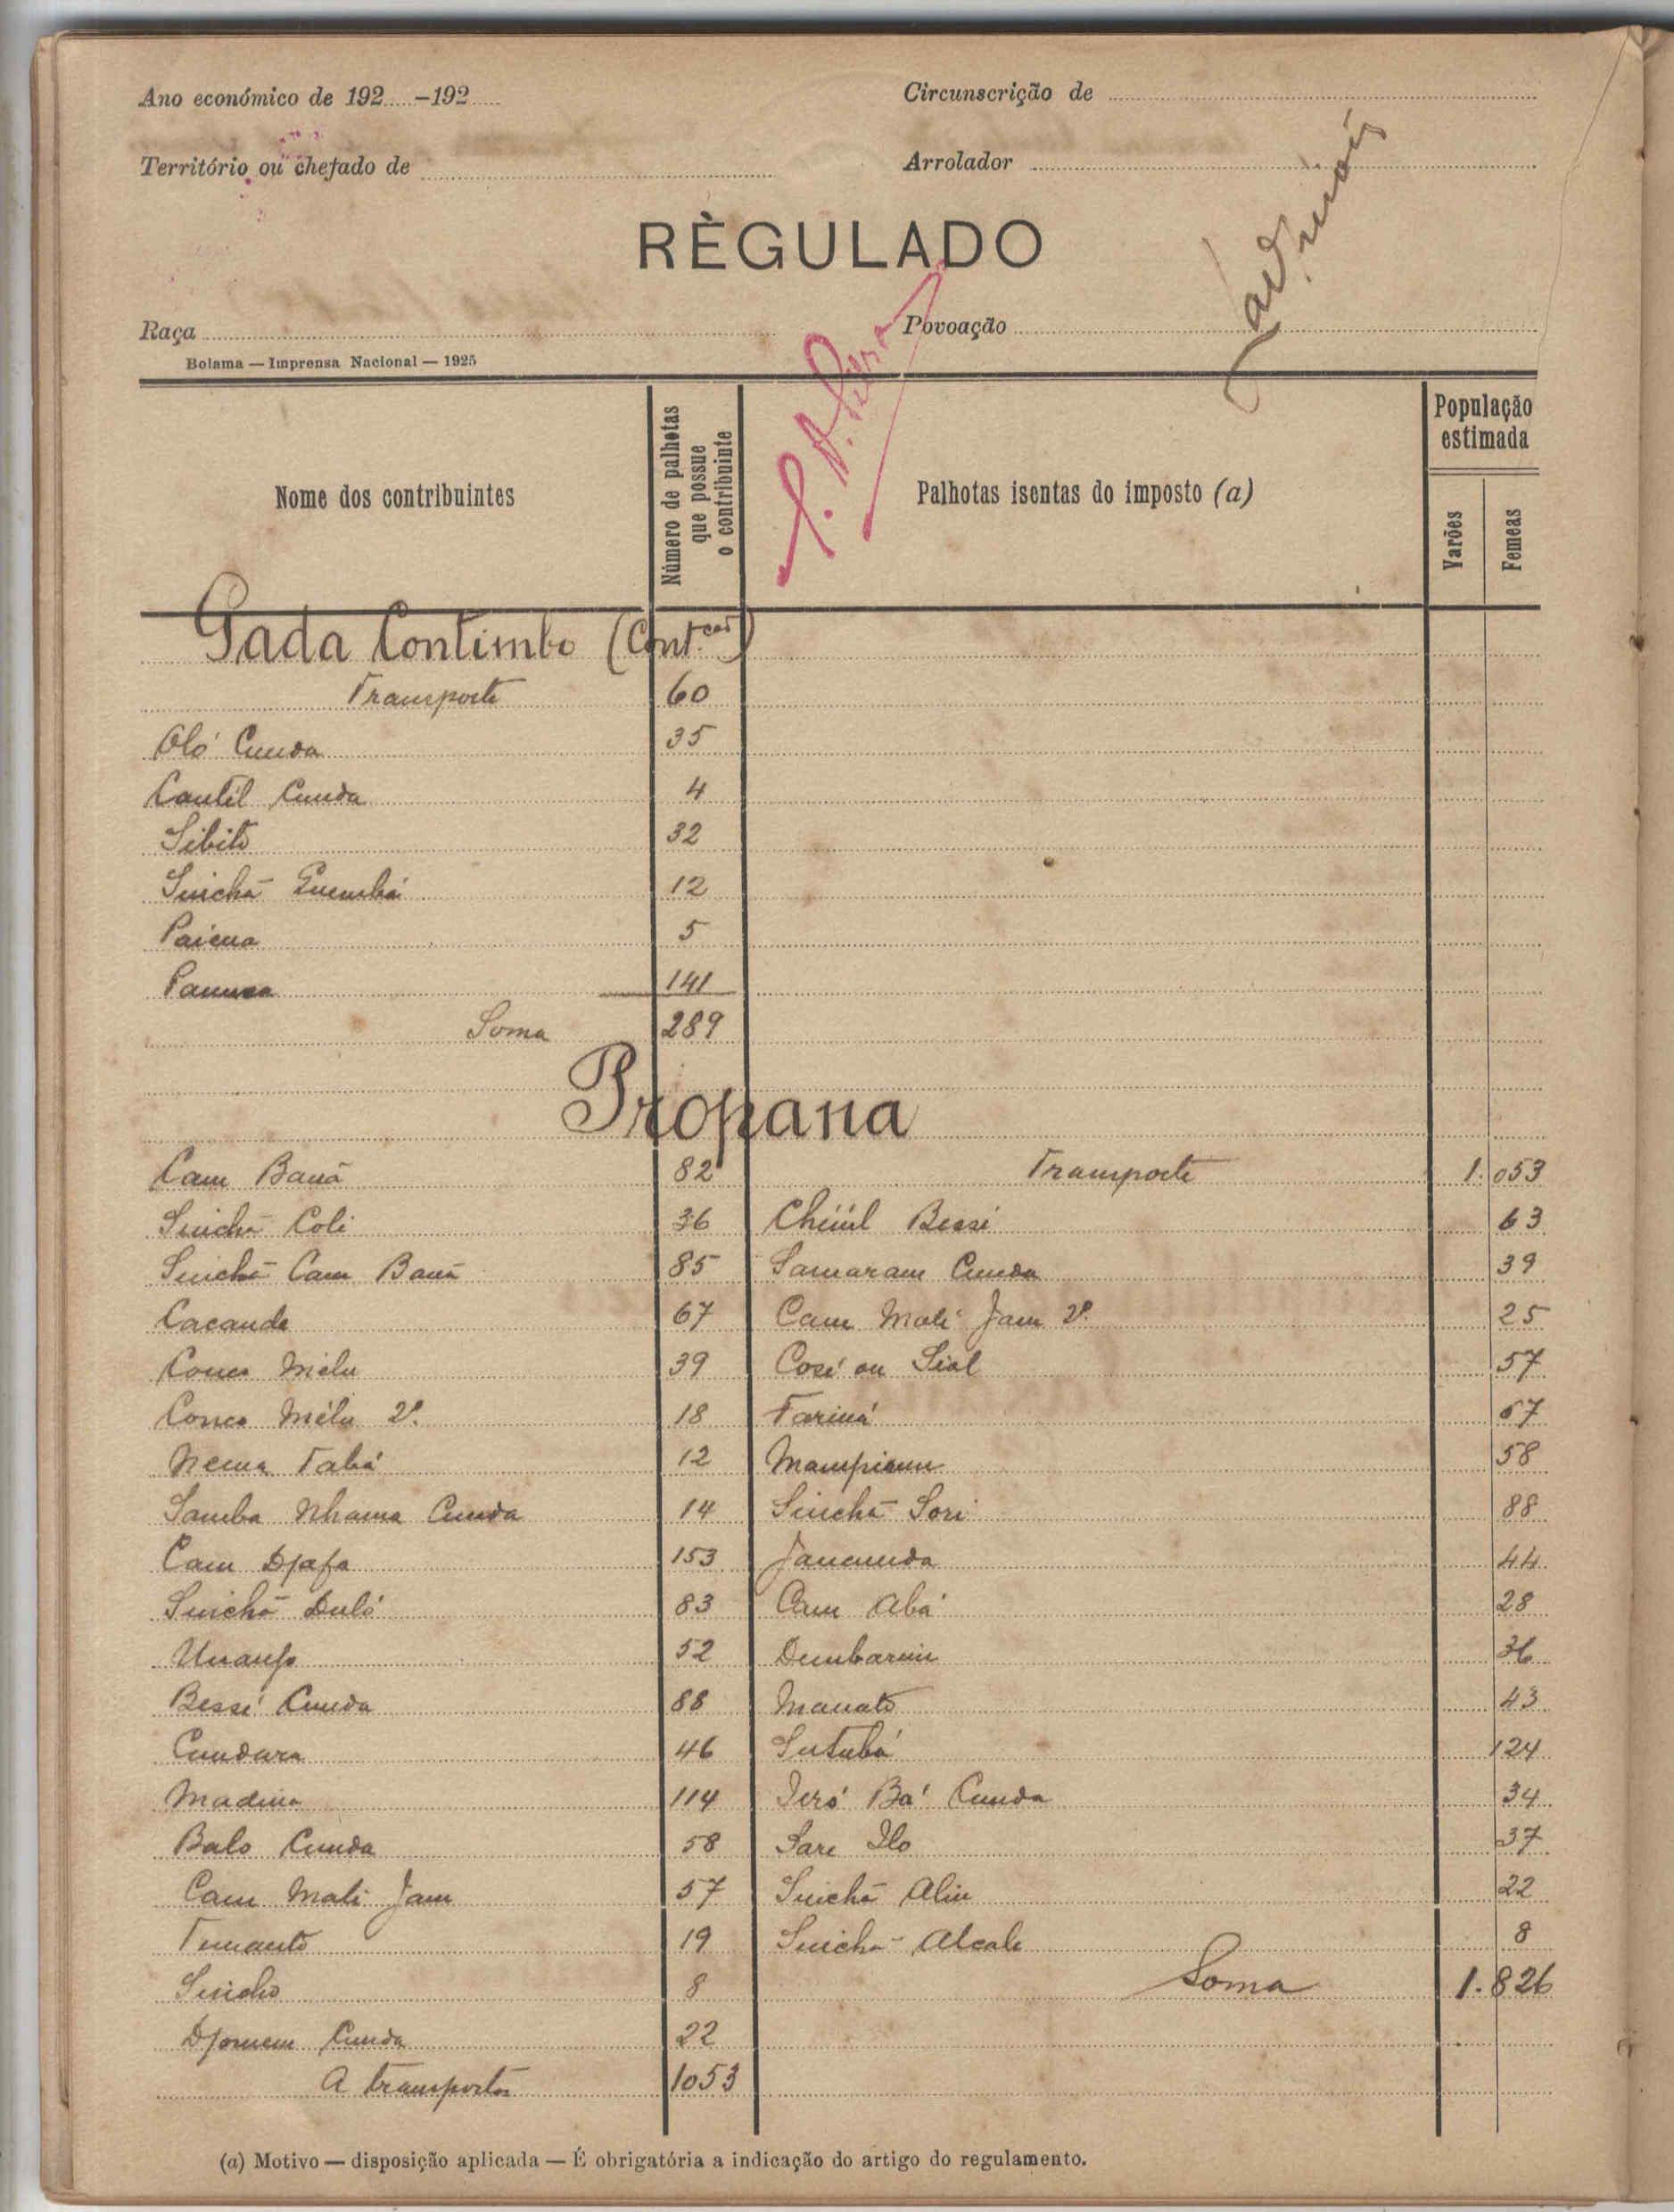 Ano económico de 192.....–192.....
Circunscrição de
Território ou chefado de
Arrolador
RÈGULADO
Raça
Povoação
Bolama — Imprensa Nacional — 1925
Nome dos contribuintes
Número de palhotas que possue o contribuinte
Palhotas isentas do imposto (a)
População estimada
Varões
Femeas
Gada Contimbo (Cont.)
Transporte 60
Oló Cunda 35
Cantil Cunda 4
Sibito 32
Sinchã Quembá 12
Paiena 5
141
Soma 289
Propana
Cam Baná 82
Sinchã Coli 36
Sinchã Cam Baná 85
Cacande 67
Conco Mélu 39
Conco Mélu 2º. 18
Nema Tabá 12
Samba Nhama Cunda 14
Cam Djafa 153
Sinchã Duló 83
52
Bessé Cunda 88
Cundara 46
Madina 114
Balo Cunda 58
Cam Mali Jam 57
Tumanto 19
Sincho 8
Djomem Cunda 22
A transportar 1053
Transporte 1.053
Bessé 63
Samaram Cunda 39
Cam Mali Jam 2º. 25
Cosé ou Sial 57
Fariná 67
58
Sinchã Sori 88
Janeunda 44
Cam Abá 28
Dembarim 36
Manato 43
Sutubá 124
Ieró Bá Cunda 34
Sare Ilo 37
Sinchã Aliu 22
Sinchã Alcale 8
Soma 1.826
(a) Motivo — disposição aplicada — É obrigatória a indicação do artigo do regulamento.